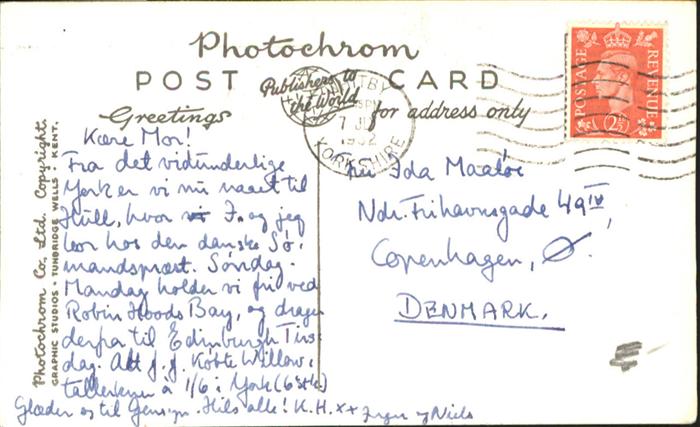 Photochrom
POST CARD
Publishers to
the World
Greetings
for address only
Photochrom Co. Ltd. Copyright.
GRAPHIC STUDIOS • TUNBRIDGE WELLS • KENT.
POSTAGE
REVENUE
2½
7 JU
1952
YORKSHIRE
Kære Mor!
Fra det vidunderlige
York er vi nu naaet til
Hüll, hvor J. og jeg
bor hos den danske Sø-
mandspræst. Søndag-
Mandag holder vi fri ved
Robin Hoods Bay, og drager
derfra til Edinburgh Tirs
dag. Alt J.J. Købte Willow-
tallerkener à 1/6 i York (6 stk)
Glæder os til Gensyn. Hils alle! K.H. xx Jørgen og Niels
Ida Maaløe
Ndr. Frihavnsgade 49 IV,
Copenhagen, Ø.
DENMARK.